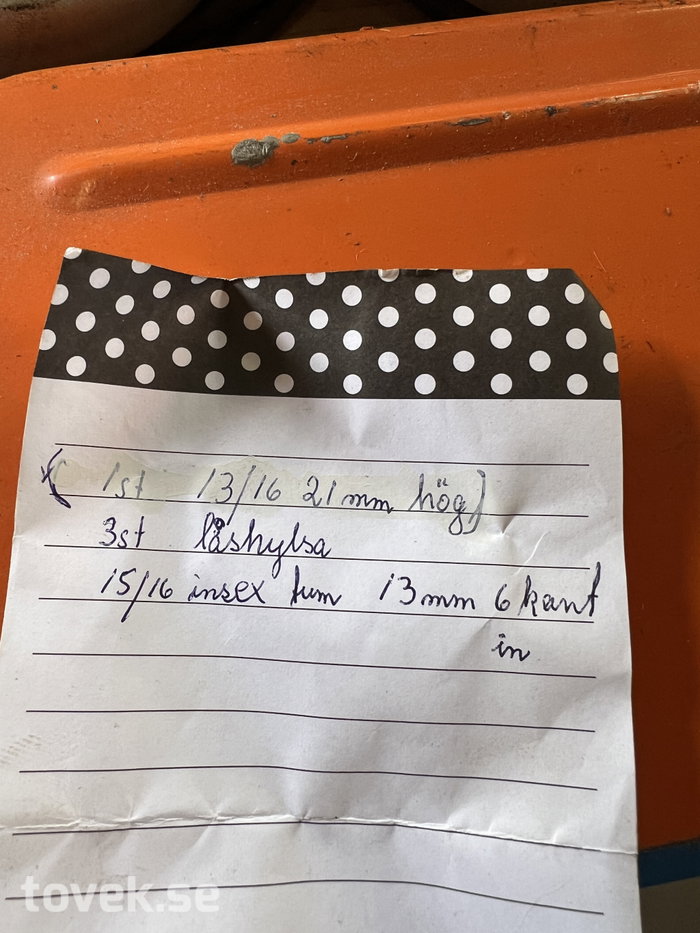 ( 1st 13/16 21 mm hög)
3st låshylsa
15/16 insex tum 13mm 6 kant
in
tovek.se